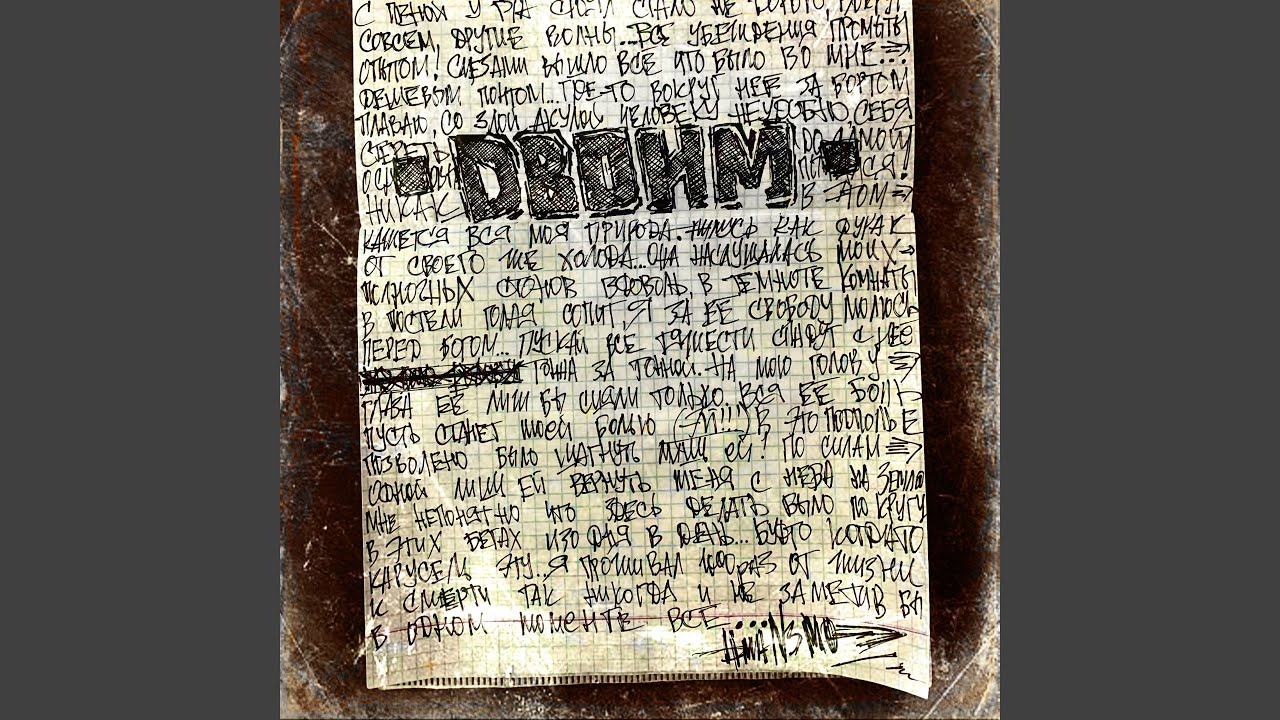 С ПЕНОЙ У РТА СТАЛО НЕ
СОВСЕМ, ДРУГИЕ ВОЛНЫ...ВСЕ УБЕЖДЕНИЯ ПРОМЫТЫ
ОПЫТОМ! СЛЕЗАМИ ВЫШЛО ВСЕ ЧТО БЫЛО ВО МНЕ...
ДЕШЕВЫМ ПОНТОМ...ГДЕ-ТО ВОКРУГ НЕЕ ЗА БОРТОМ
ПЛАВАЮ, СО ЗЛОЙ АКУЛОЙ ЧЕЛОВЕКУ НЕУДОБНО, СЕБЯ
СТЕРЕТЬ ДО САМОЙ
· ДВОИМ ·
НИКАК В ЭТОМ
КАЖЕТСЯ ВСЯ МОЯ ПРИРОДА. КАК ДУРАК
ОТ СВОЕГО ЖЕ ХОЛОДА...ОНА НАСЛУШАЛАСЬ МОИХ
ПОЛНОЧНЫХ СТОНОВ ВДОВОЛЬ, В ТЕМНОТЕ КОМНАТЫ
В ПОСТЕЛИ ГОЛАЯ СОПИТ, Я ЗА ЕЕ СВОБОДУ МОЛЮСЬ
ПЕРЕД БОГОМ... ПУСКАЙ ВСЕ ТЯЖЕСТИ СПАДУТ С НЕЕ
ТОННА ЗА ТОННОЙ. НА МОЮ ГОЛОВУ
ГЛАЗА ЕЕ ЛИШ БЫ СИЯЛИ ТОЛЬКО. ВСЯ ЕЕ БОЛЬ
ПУСТЬ СТАНЕТ МОЕЙ БОЛЬЮ (ЭЙ!!!) В ЭТО ПОДПОЛЬЕ
ПОЗВОЛЕНО БЫЛО ШАГНУТЬ ЛИШ ЕЙ! ПО СИЛАМ
ОДНОЙ ЛИШ ЕЙ ВЕРНУТЬ МЕНЯ С НЕБА НА ЗЕМЛЮ
МНЕ НЕПОНЯТНО ЧТО ЗДЕСЬ ДЕЛАТЬ БЫЛО ПО КРУГУ
В ЭТИХ БЕГАХ ИЗО ДНЯ В ДЕНЬ... БУДТО КОГДА ТО
КАРУСЕЛЬ ЭТУ..Я ПРОЖИВАЛ 1000 РАЗ ОТ ЖИЗНИ
К СМЕРТИ ТАК НИКОГДА И НЕ ЗАМЕТИВ БЫ
В ОДНОМ МОМЕНТЕ ВСЕ...